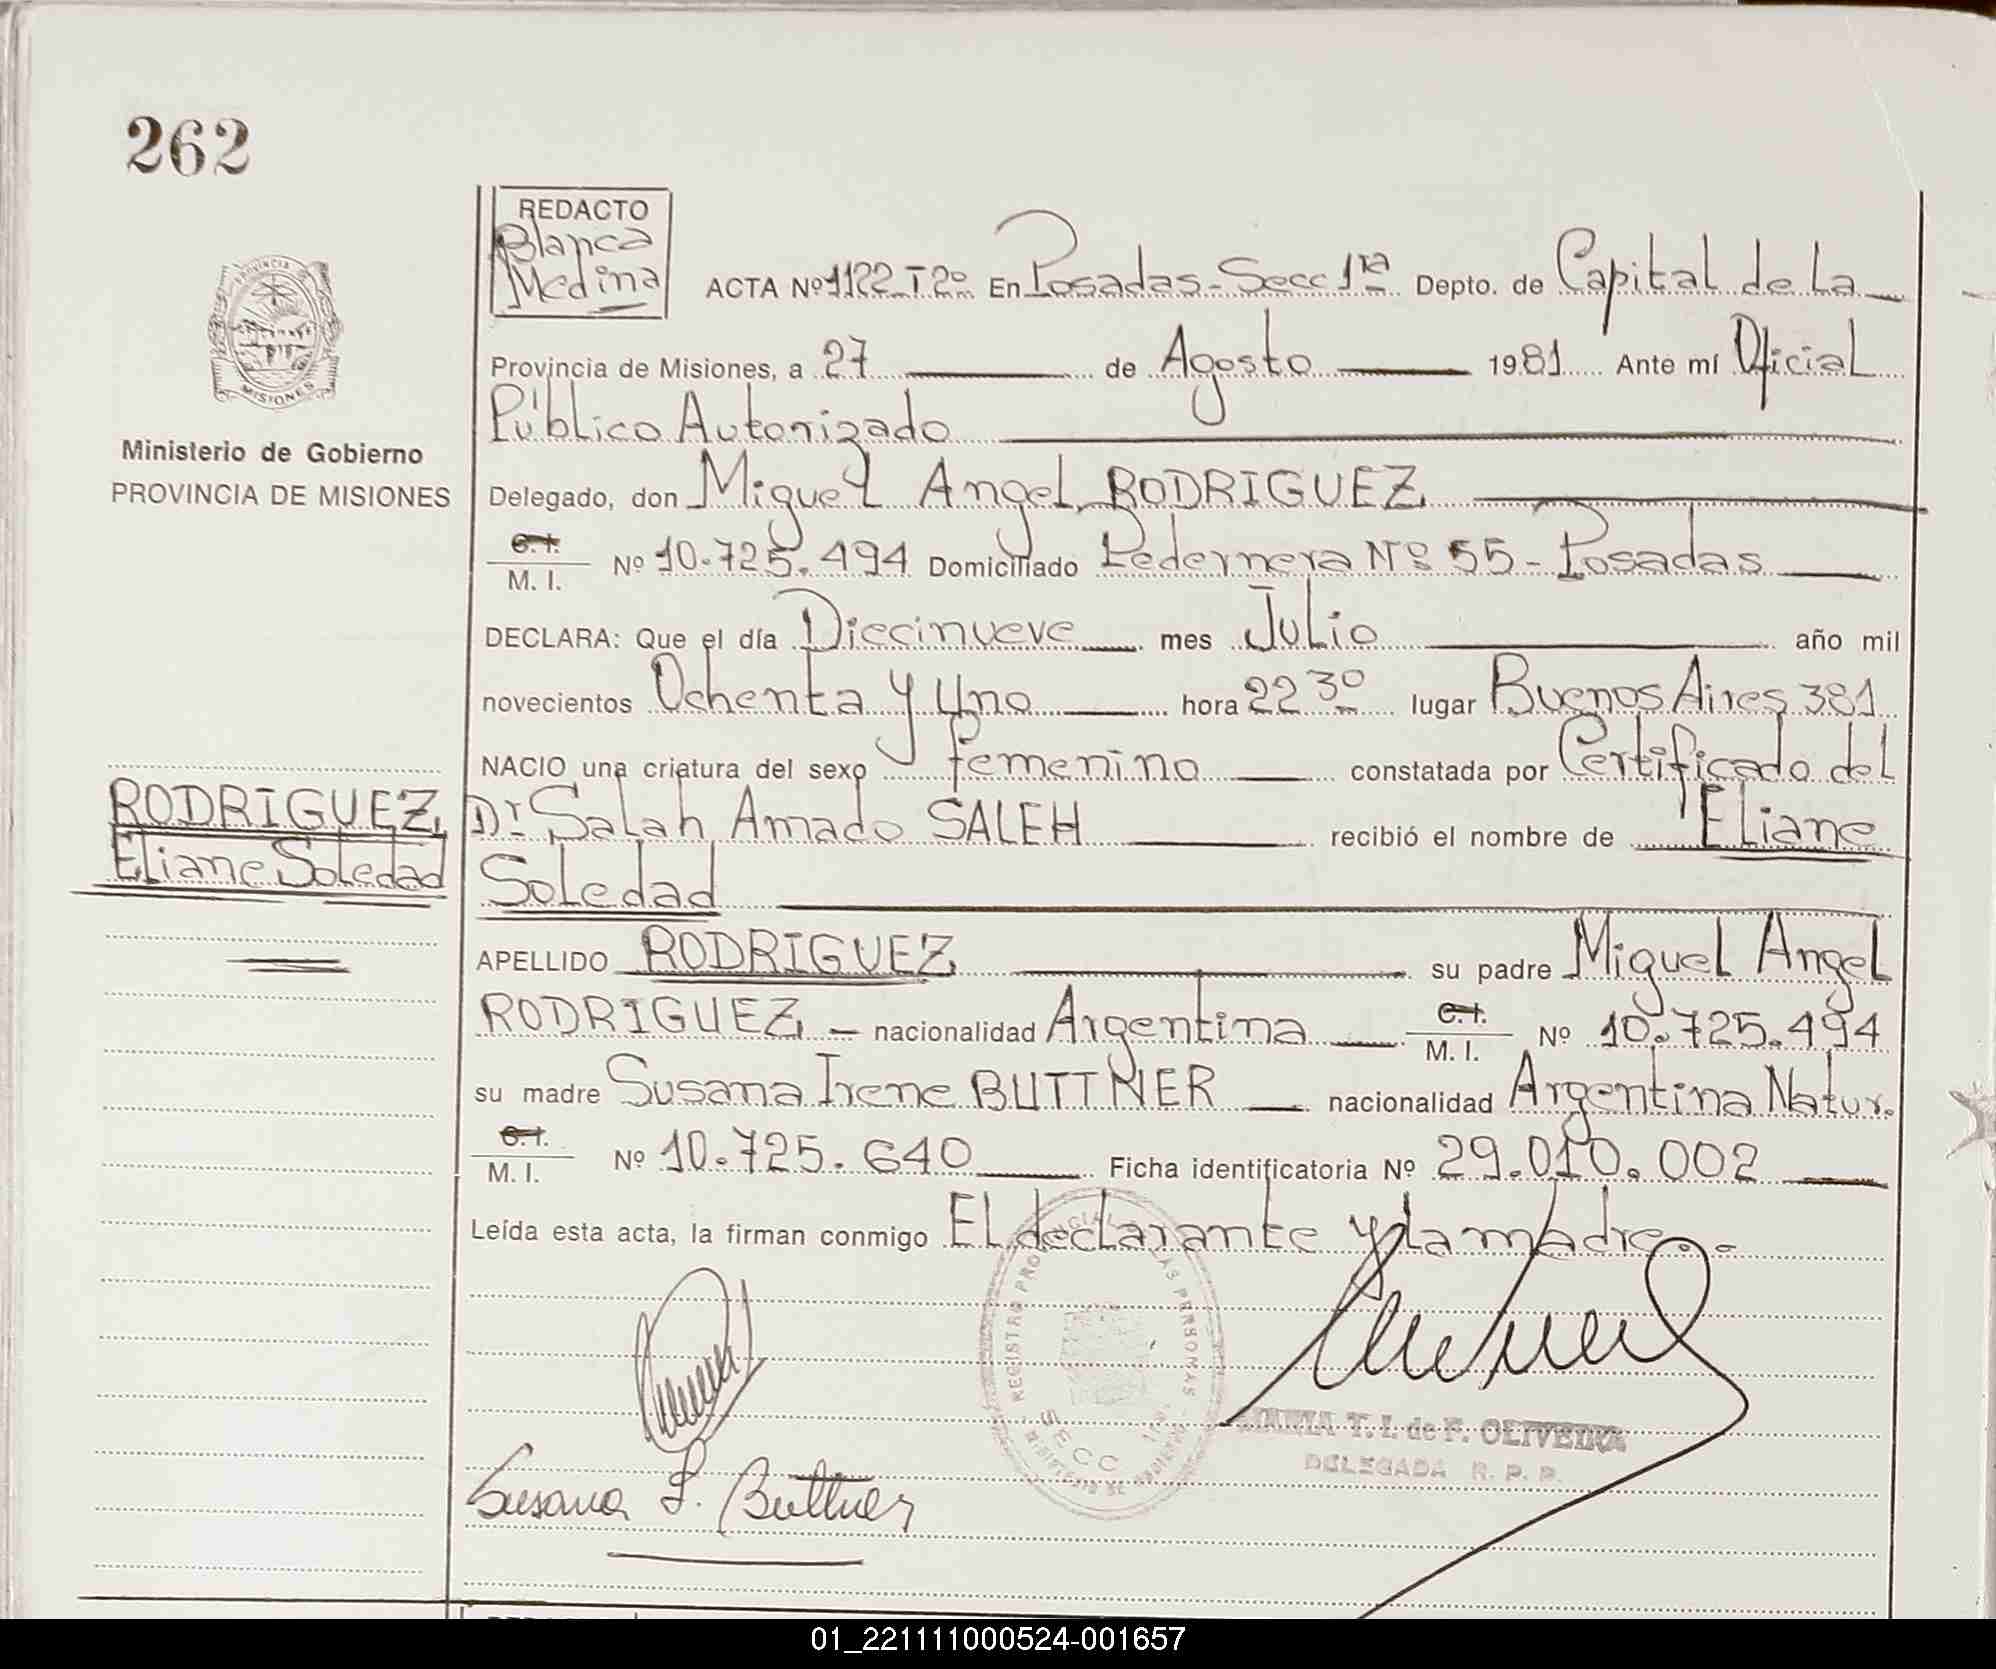 262
REDACTO
Blanca
Medina
ACTA Nº 1122-T2º En Posadas-Secc 1ra Depto. de Capital de La
Provincia de Misiones, a 27 de Agosto 1981 Ante mí Oficial
Público Autorizado
Delegado, don Miguel Angel RODRIGUEZ
C.I.
M. I. Nº 10.725.494 Domiciliado Pedernera Nº 55-Posadas
DECLARA: Que el día Diecinueve mes Julio año mil
novecientos Ochenta y Uno hora 22 30 lugar Buenos Aires 381
NACIO una criatura del sexo femenino constatada por Certificado del
Dr Salah Amado SALEH recibió el nombre de Eliane
Soledad
APELLIDO RODRIGUEZ su padre Miguel Angel
RODRIGUEZ nacionalidad Argentina C.I.
M. I. Nº 10.725.494
su madre Susana Irene BUTTNER nacionalidad Argentina Natur.
C.I.
M. I. Nº 10.725.640 Ficha identificatoria Nº 29.010.002
Leída esta acta, la firman conmigo El declarante y la madre.-
PROVINCIA
MISIONES
Ministerio de Gobierno
PROVINCIA DE MISIONES
RODRIGUEZ,
Eliane Soledad
Susana I. Buttner
REGISTRO PROVINCIAL DE LAS PERSONAS
SECC 1ra
MINISTERIO DE GOBIERNO
MARIA T. I. de F. OLIVEIRA
DELEGADA R. P. P.
01_221111000524-001657